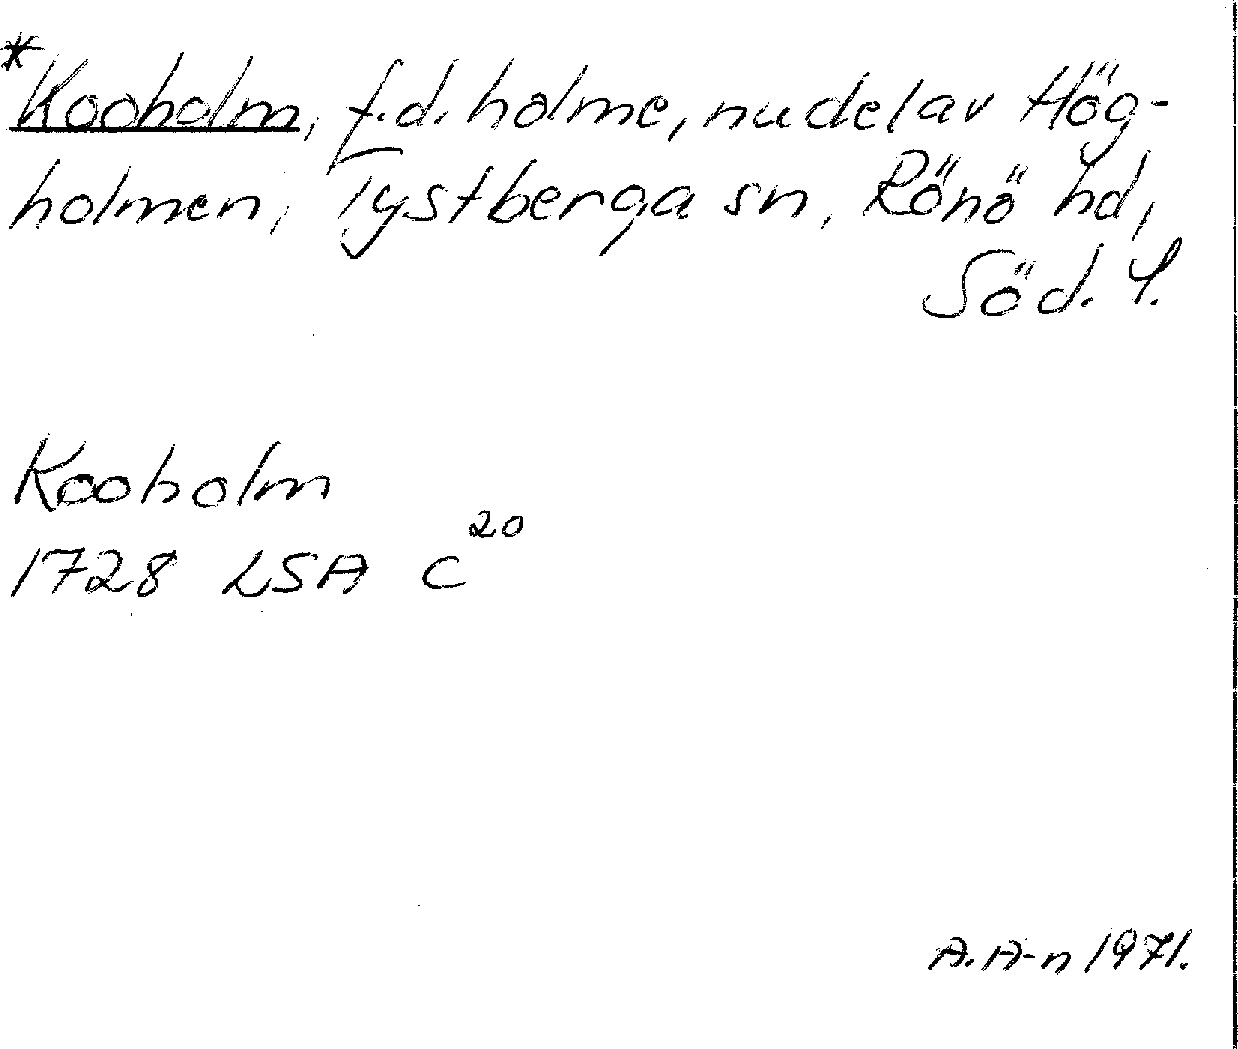 *Kooholm, f.d. holme, nu del av Hög-
holmen, Tystberga sn, Rönö hd,
Söd. l.
Kooholm
1728 LSA C 20
A. A-n 1971.